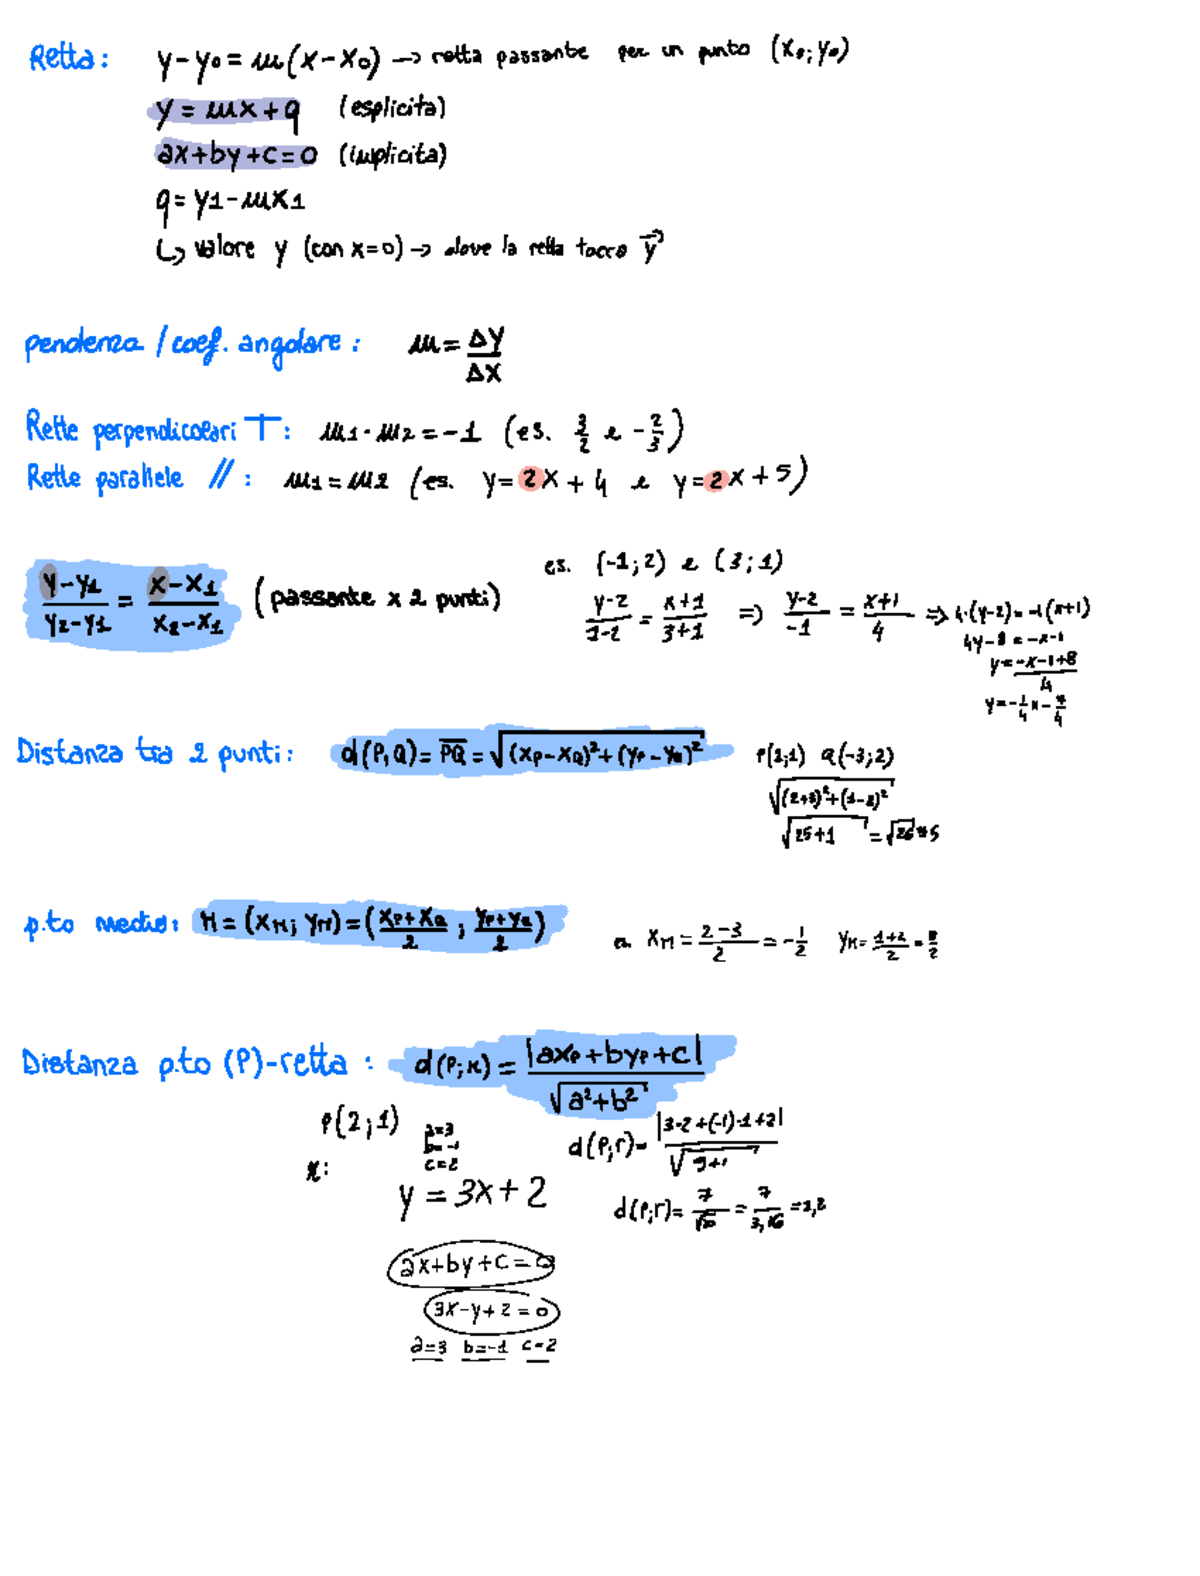 Retta: y-y0 = m(x-x0) → retta passante per un punto (x0; y0)
y = mx+q (esplicita)
ax+by+c=0 (implicita)
q = y1-mx1
↳ valore y (con x=0) → dove la retta tocca y→
pendenza / coef. angolare: m = Δy/Δx
Rette perpendicolari ⊤: m1·m2 = -1 (es. 3/2 e -2/3)
Rette parallele //: m1 = m2 (es. y=2x+4 e y=2x+5)
(y-y1)/(y2-y1) = (x-x1)/(x2-x1) (passante x 2 punti)
es. (-1;2) e (3;1)
(y-2)/(1-2) = (x+1)/(3+1) ⇒ (y-2)/-1 = (x+1)/4 ⇒ 4·(y-2) = -1(x+1)
4y-8 = -x-1
y = (-x-1+8)/4
y = -1/4 x - 7/4
Distanza tra 2 punti: d(P,Q) = PQ = √((xP-xQ)²+(yP-yQ)²)
P(2;1) Q(-3;2)
√((2+3)²+(1-2)²)
√(25+1) = √26 ≈ 5
p.to medio: M = (xM; yM) = ((xP+xQ)/2 ; (yP+yQ)/2)
xM = (2-3)/2 = -1/2 yM = (1+2)/2 = 3/2
Distanza p.to (P)-retta: d(P;r) = |axP+byP+c|/√(a²+b²)
P(2;1)
a=3
b=-1
c=2
d(P;r) = |3·2+(-1)·1+2|/√(9+1)
r:
y = 3x+2
d(P;r) = 7/√10 = 7/3,16 = 2,2
ax+by+c=0
3x-y+2=0
a=3 b=-1 c=2